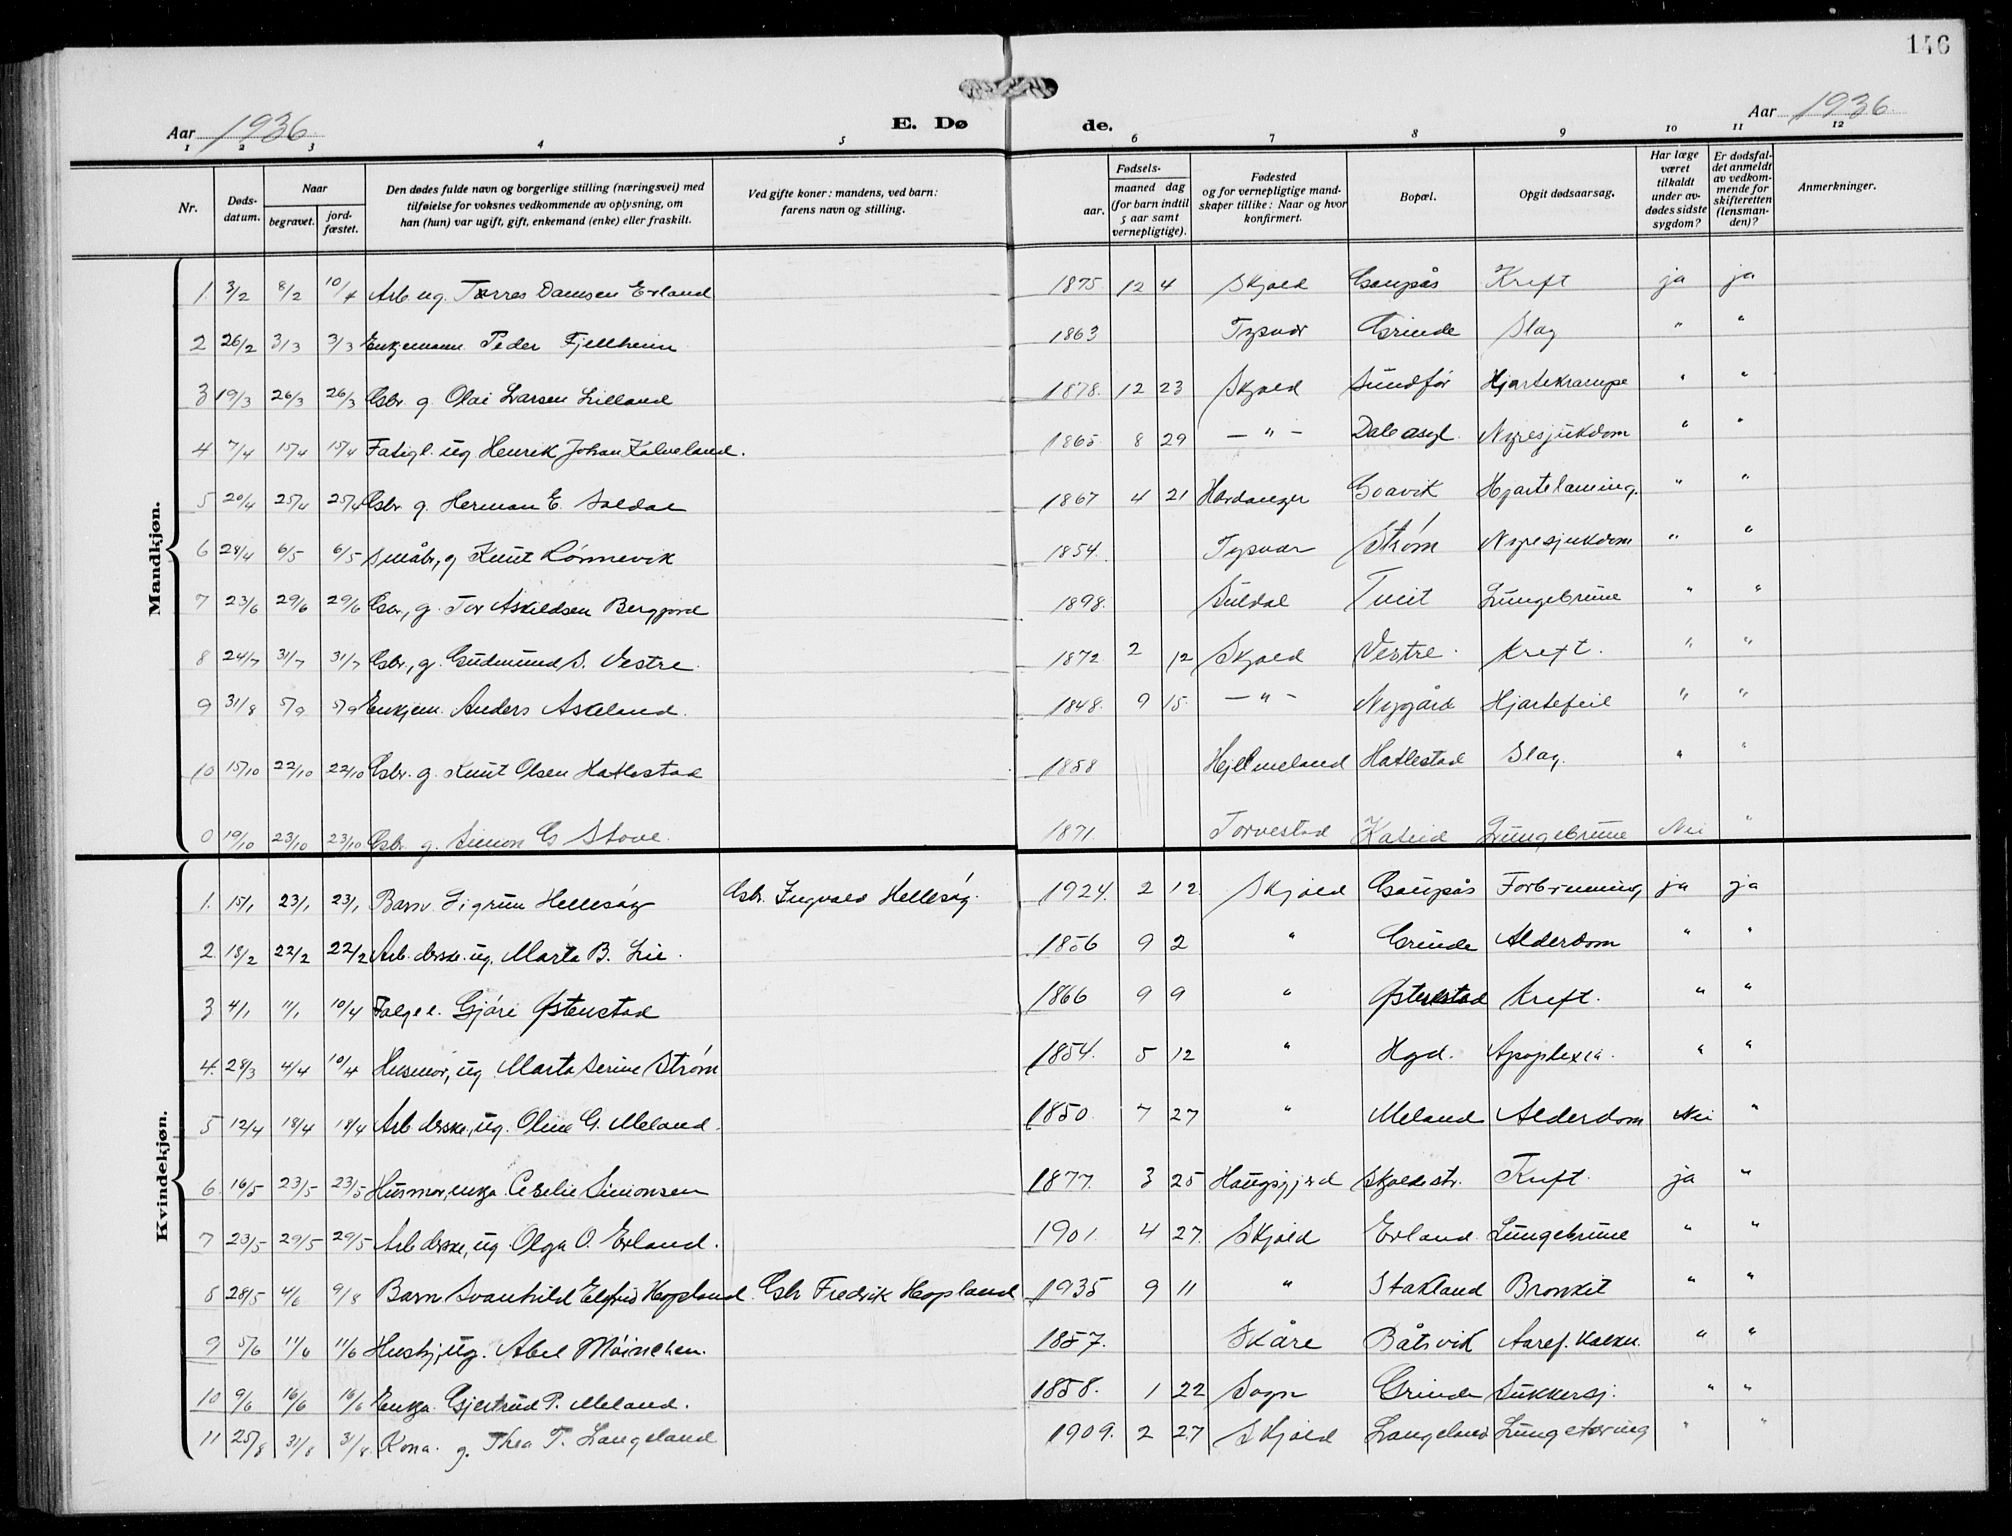 146
Aar 1936 E. Døde. Aar 1936
1 2 3 4 5 6 7 8 9 10 11 12
Nr. Døds-datum. Naar begravet. jord-fæstet. Den dødes fulde navn og borgerlige stilling (næringsvei) med tilføielse for voksnes vedkommende av oplysning, om han (hun) var ugift, gift, enkemand (enke) eller fraskilt. Ved gifte koner: mandens, ved barn: farens navn og stilling. Fødsels- aar. maaned dag (for barn indtil 5 aar samt vernepligtige). Fødested og for vernepligtige mand-skaper tillike: Naar og hvor konfirmert. Bopæl. Opgit dødsaarsag. Har læge været tilkaldt under av-dødes sidste sygdom? Er dødsfal-det anmeldt av vedkom-mende for skifteretten (lensman-den)? Anmerkninger.
Mandkjøn.
1. 3/2 8/2 10/4 Arb. ug. Torres Damsen Erland 1875 12 4 Skjold Gaupås Kreft ja ja
2 26/2 3/3 3/3 Enkjemann Peder Fjellheim 1863 Tysvær Grinde Slag " "
3 19/3 26/3 26/3 Gbr. g. Olai Larsen Lilland 1878. 12 23 Skjold Sundfør Hjartekrampe " "
4 7/4 15/4 15/4 Fatigl. ug Henrik Johan Kalveland. 1865 8 29 — " — Dale asyl. Nyresjukdom " "
5 20/4 25/4 25/4 Gbr. g. Herman E. Soldal 1867 4 21 Hardanger Goavik Hjartelaming. " "
6 28/4 6/5 6/5 Småbr, g Knut Rønnevik 1854. Tysvær Strøm Nyresjukdom " "
7 23/6 29/6 29/6 Gbr, g. Tor Askildsen Bergjord 1898. Suldal Tveit Lungebrune " "
8 24/7 31/7 31/7 Gbr, g. Gudmund S. Vestre 1872 2 12 Skjold Vestre. Kreft. " "
9 31/8 5/9 5/9 Enkjem. Anders Askeland. 1848. 9 15 — " — Nygård Hjartefeil " "
10 15/10 22/10 22/10 Gbr. g. Knut Olsen Hatlestad 1858 Hjelmeland Hatlestad Slag. " "
0 19/10 23/10 23/10 Gbr. g. Simon G Stove. 1871. Torvestad Kateid Lungebrune Nei "
Kvindekjøn.
1. 15/1 23/1 23/1 Barn. Sigrun Hellesøy Gbr. Ingvald Hellesøy. 1924. 2 12 Skjold Gaupås Forbrenning ja ja
2. 18/2 22/2 22/2 Arb.derske. ug. Marta B. Lie. 1856 9 2 " Grinde Alderdom " "
3 4/1 11/1 10/4 Gjøri Østenstad 1866 9 9 " Østenstad Kreft. " "
4. 28/3 4/4 10/4 Husmor, ug Marta Serine Strøm 1854. 5 12 " Hgd. Apoplexia. " "
5 12/4 18/4 18/4 Arb.derske, ug. Oline G. Meland. 1850. 7 27 " Meland Alderdom Nei "
6. 16/5 23/5 23/5 Husmor, enkja. Cecelie Simonsen 1877. 3 25 Haugsgjerd Skjoldastr. Kreft. ja "
7 23/5 29/5 29/5 Arb.derske, ug Olga O. Erland. 1901. 4 27. Skjold Erland. Lungebrune " "
8 28/5 4/6 9/8 Barn Svanhild Elfrid Hopland Gbr Fredrik Hopland 1935 9 11 " Stakland Bronkit " "
9 5/6 11/6 11/6 Hushj, ug. Abel Møinichen. 1857. Skåre Båtsvik Aaref. Kalkn. " "
10 9/6 16/6 16/6 Enkja. Gjertrud P. Meland. 1858. 1 22 Sogn Grinde Sukkersj. " "
11 25/8 31/8 31/8 Kona. g. Thea T. Langeland 1909. 2 27 Skjold Langeland Lungetæring " "